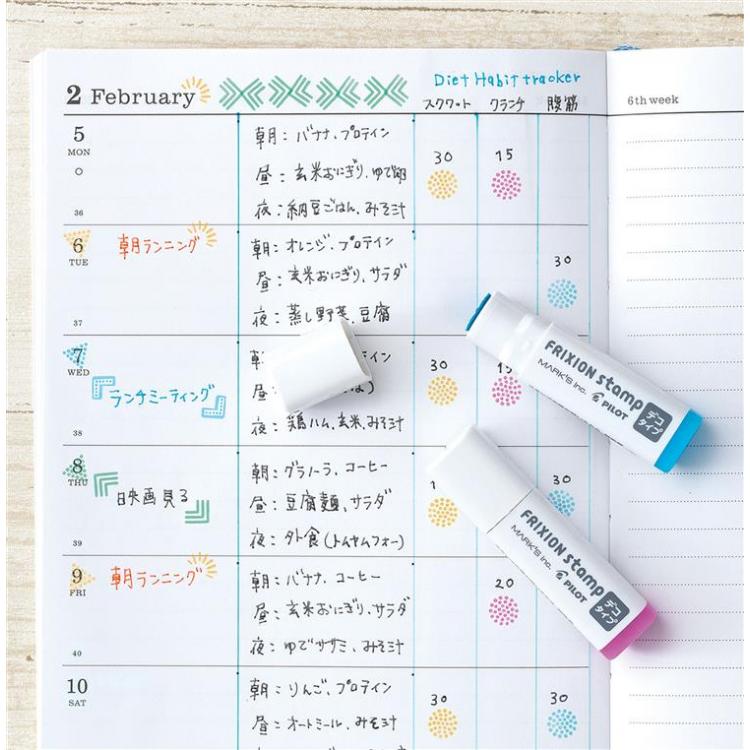 2 February
Diet Habit tracker
スクワット クランチ 腹筋
6th week
5
MON
36
朝：バナナ、プロテイン
昼：玄米おにぎり、ゆで卵
夜：納豆ごはん、みそ汁
30 15
6
TUE
37
朝ランニング
朝：オレンジ、プロテイン
昼：玄米おにぎり、サラダ
夜：蒸し野菜、豆腐
30
7
WED
38
ランチミーティング
朝
昼：
夜：鶏ハム、玄米、みそ汁
30 15
8
THU
39
映画見る
朝：グラノーラ、コーヒー
昼：豆腐麺、サラダ
夜：外食（トムヤムフォー）
30
9
FRI
40
朝ランニング
朝：バナナ、コーヒー
昼：玄米おにぎり、サラダ
夜：ゆでササミ、みそ汁
20
10
SAT
朝：りんご、プロテイン
昼：オートミール、みそ汁
30 30
FRIXION stamp
MARK'S inc. PILOT
デコタイプ
FRIXION stamp
MARK'S inc. PILOT
デコタイプ